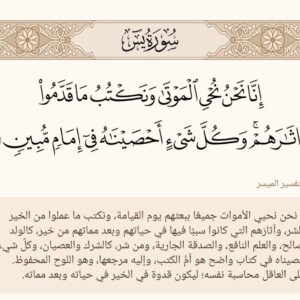 سُورَةُ يسٓ
إِنَّا نَحْنُ نُحْيِ الْمَوْتَىٰ وَنَكْتُبُ مَا قَدَّمُوا۟
اثَٰرَهُمْ ۚ وَكُلَّ شَىْءٍ أَحْصَيْنَٰهُ فِىٓ إِمَامٍ مُّبِينٍ
فسير الميسر
نحن نحيي الأموات جميعًا ببعثهم يوم القيامة، ونكتب ما عملوا من الخير
شر، وآثارهم التي كانوا سببًا فيها في حياتهم وبعد مماتهم من خير، كالولد
صالح، والعلم النافع، والصدقة الجارية، ومن شر، كالشرك والعصيان، وكلَّ شيء
صيناه في كتاب واضح هو أمُّ الكتب، وإليه مرجعها، وهو اللوح المحفوظ.
لى العاقل محاسبة نفسه؛ ليكون قدوة في الخير في حياته وبعد مماته.